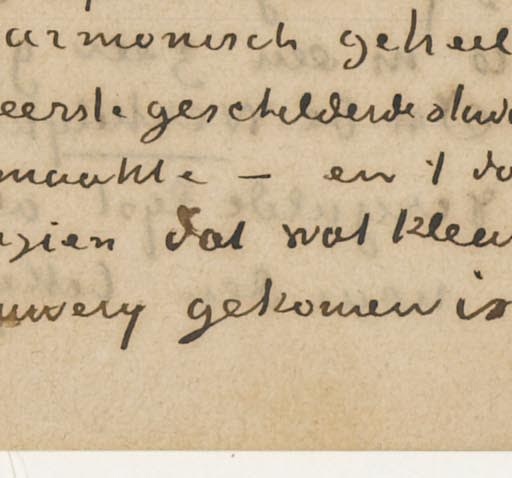 armonisch geheel
eerste geschilderde stud
maakte – en 't do
zien dat wat kleur
uwerij gekomen is